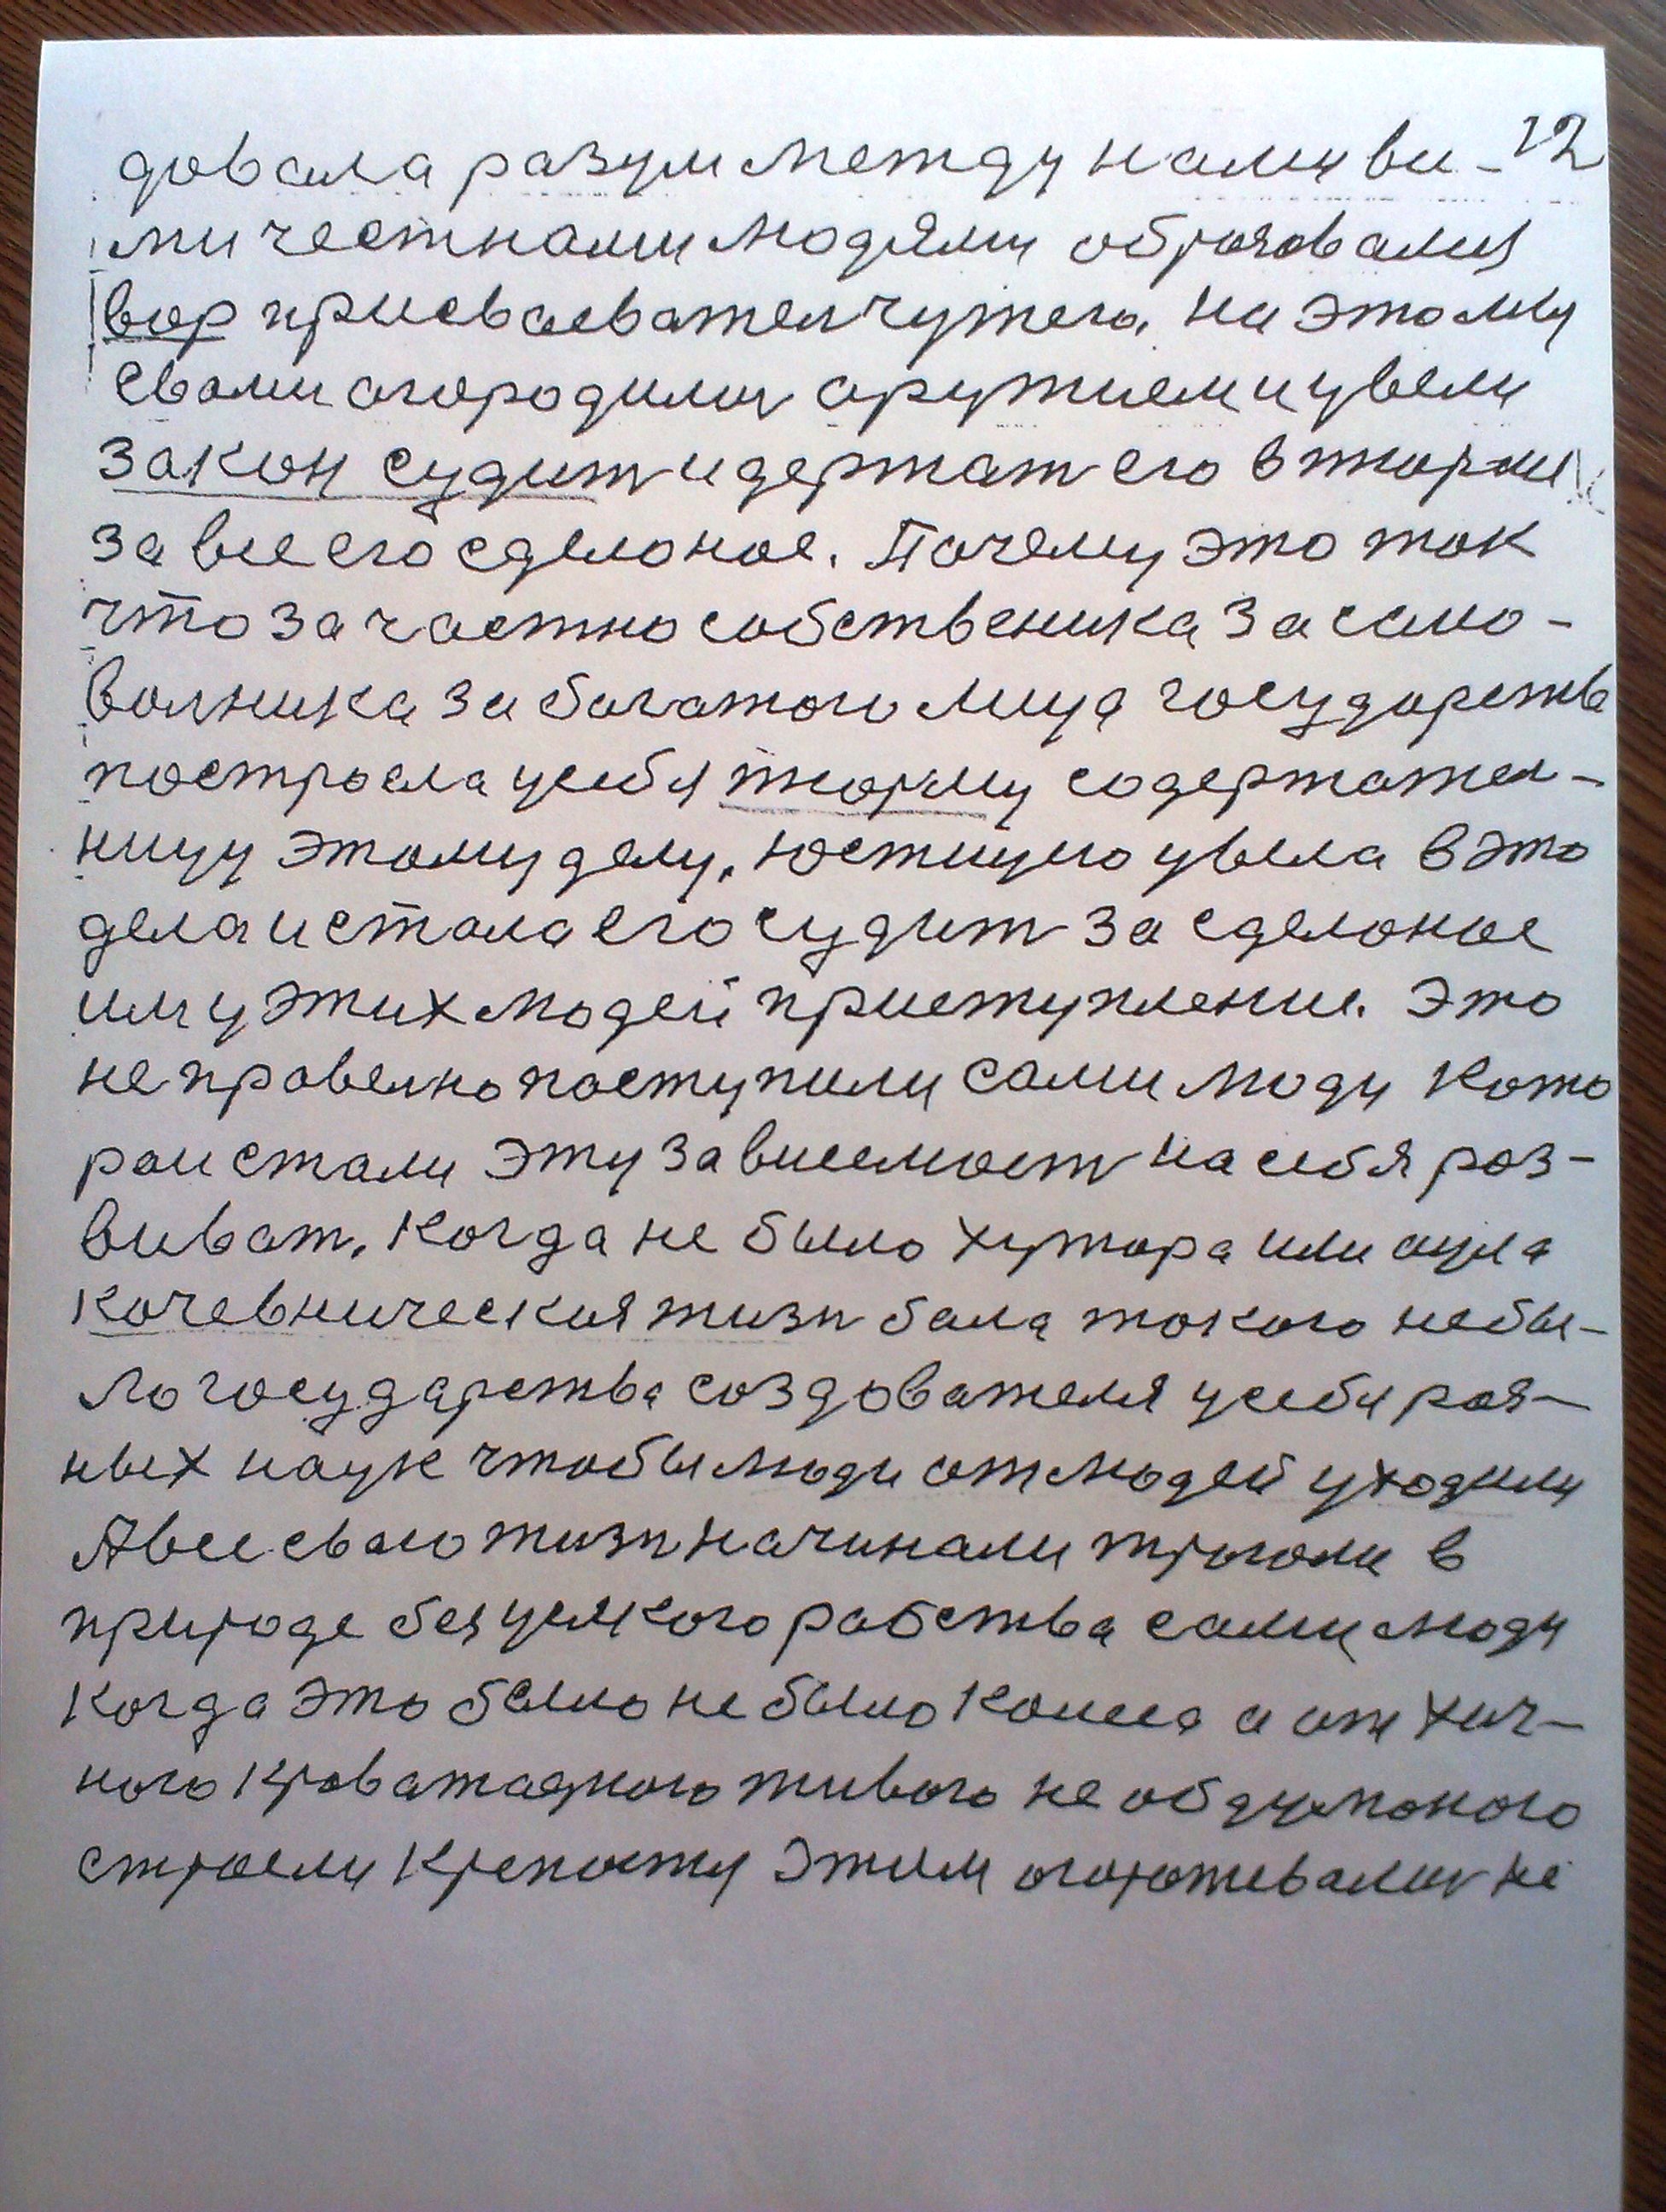 12
довала разум между нами вы-
ми честнами людями образовался
вор присваеватель чужего. На этому
свами огородили аружием и увели
закон судит и держат его в тюрми
за все его сделоное. Почему это так
что за частно собственика за само-
волника за богатого лица государства
построела у себя тюрму содержател-
ницу этому делу, юстицию увела в это
дела и стала его судит за сделоное
им у этих людей приступление. Это
не провелно поступили сами люди кото
раи стали эту зависемост на себя роз-
виват. Когда не было хутора или аула
кочевническая жизн бала токого небы-
ло государства создователя у себя роя-
ных наук чтобы люди от людей уходили
А все сваю жизн начинали трогоме в
природе без уялкого рабства сами люди
когда это было не было колиса а от хич-
ного кроватадного живого не обдуманого
строели крепости этим огорожевалис не